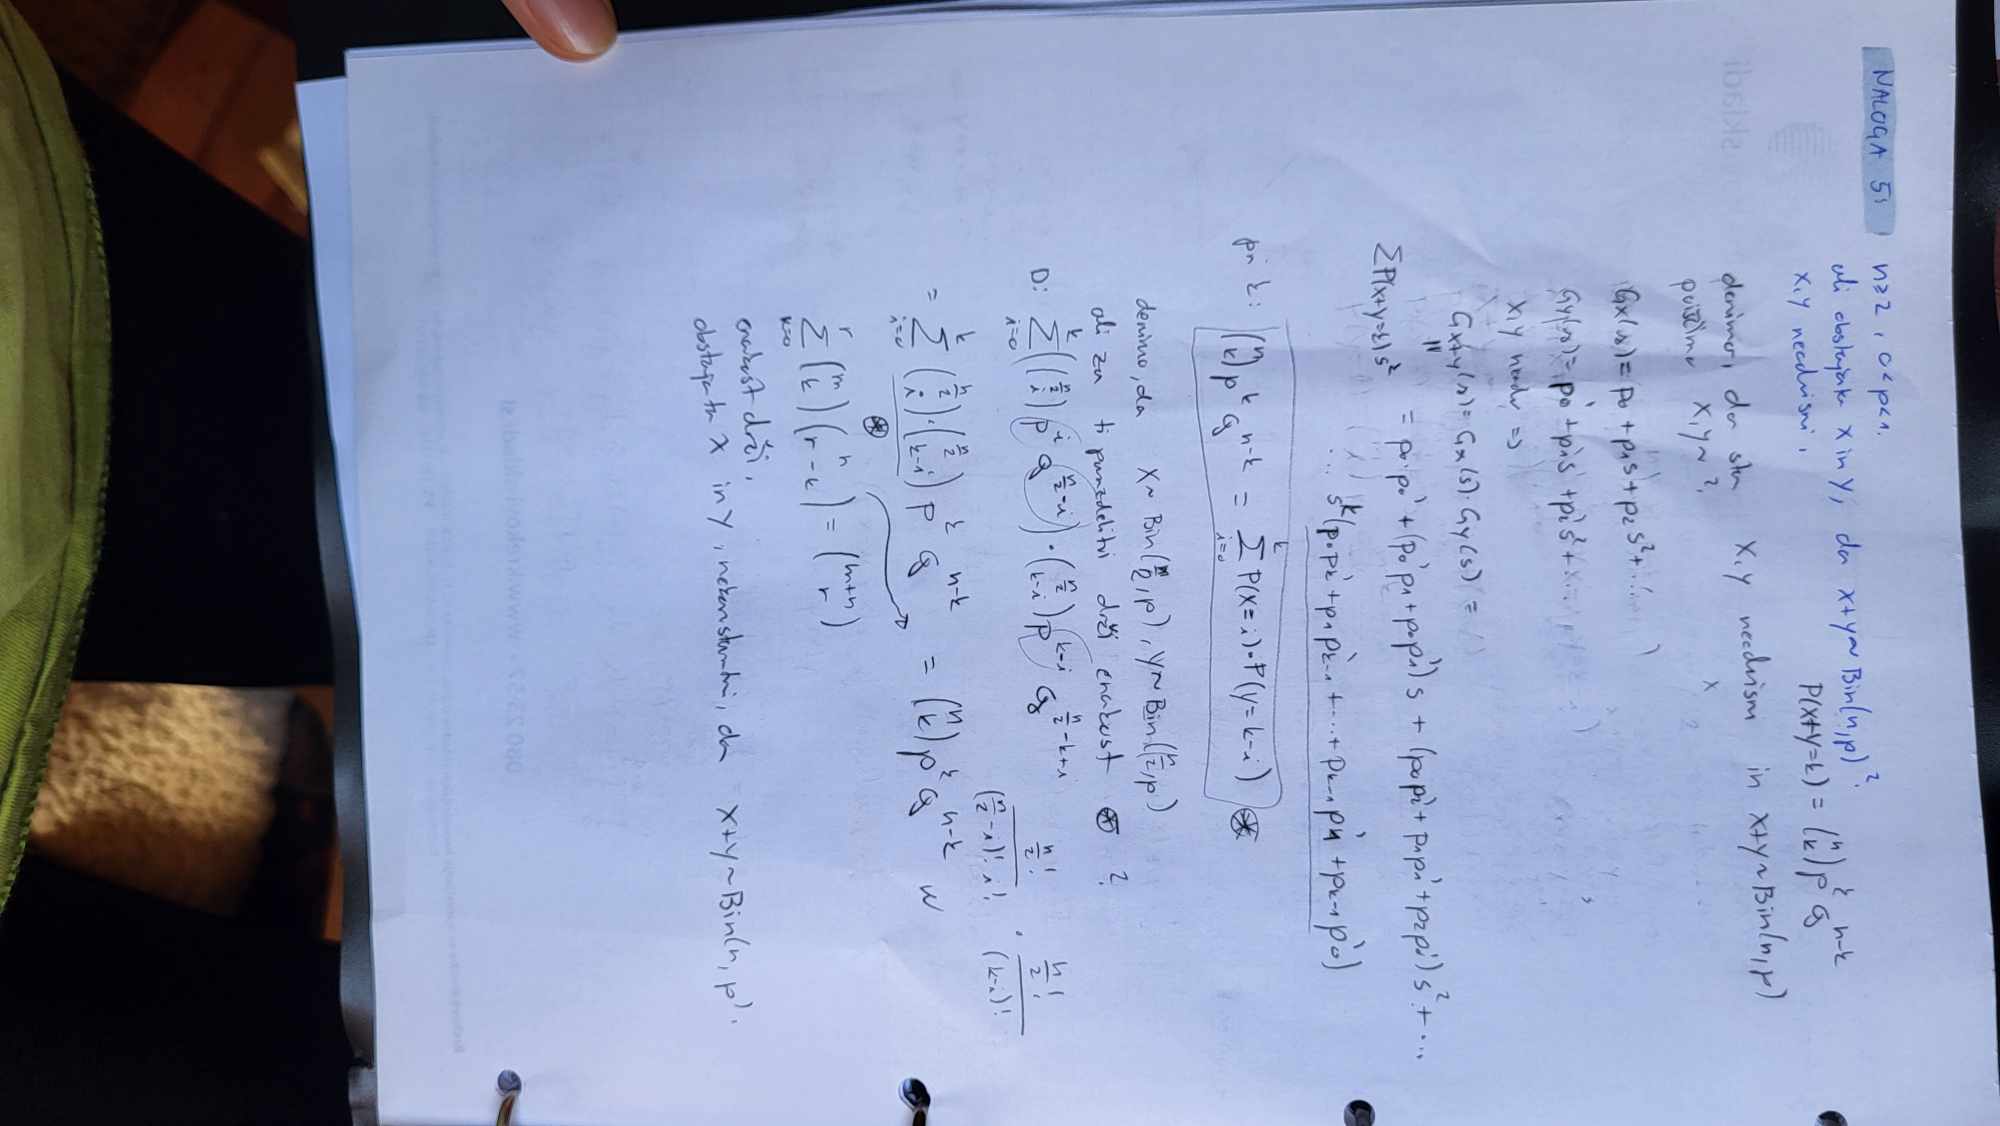 NALOGA 5:
n≥2, 0<p<1.
ali obstajata X in Y, da X+Y~Bin(n,p)?
X,Y neodvisni.
P(X+Y=k) = (n k) p^k q^(n-k)
denimo, da sta X,Y neodvisni in X+Y~Bin(n,p)
X,Y ~ ?
Gx(s) = p0 + p1s + p2s² + ...
Gy(s) = p0' + p1's + p2's² + ...
X,Y neodv. =>
Gx+y(s) = Gx(s)·Gy(s) =
ΣP(X+Y=k)s^k = p0·p0' + (p0'p1 + p0p1')s + (p0p2' + p1p1' + p2p0')s² + ...
... s^k(p0pk' + p1pk-1' + ... + pk-1p1' + pk-1p0')
pri k: (n k) p^k q^(n-k) = Σ_(i=0)^k P(X=i)·P(Y=k-i) ⊛
denimo, da X~Bin(n/2,p), Y~Bin(n/2,p)
ali za ti porazdelitvi drži enakost ⊛ ?
D: Σ_(i=0)^k (n/2 i) p^i q^(n/2-i) · (n/2 k-i) p^(k-i) q^(n/2-k+i)
n/2! / (n/2-i)! i! · n/2! / (k-i)!
= Σ_(i=0)^k (n/2 i)·(n/2 k-i) p^k q^(n-k) = (n k) p^k q^(n-k)
⊛
Σ_(k=0)^r (m k)(n r-k) = (m+n r)
enakost drži,
obstajata X in Y, nekonstantni, da X+Y~Bin(n,p).
080 2332